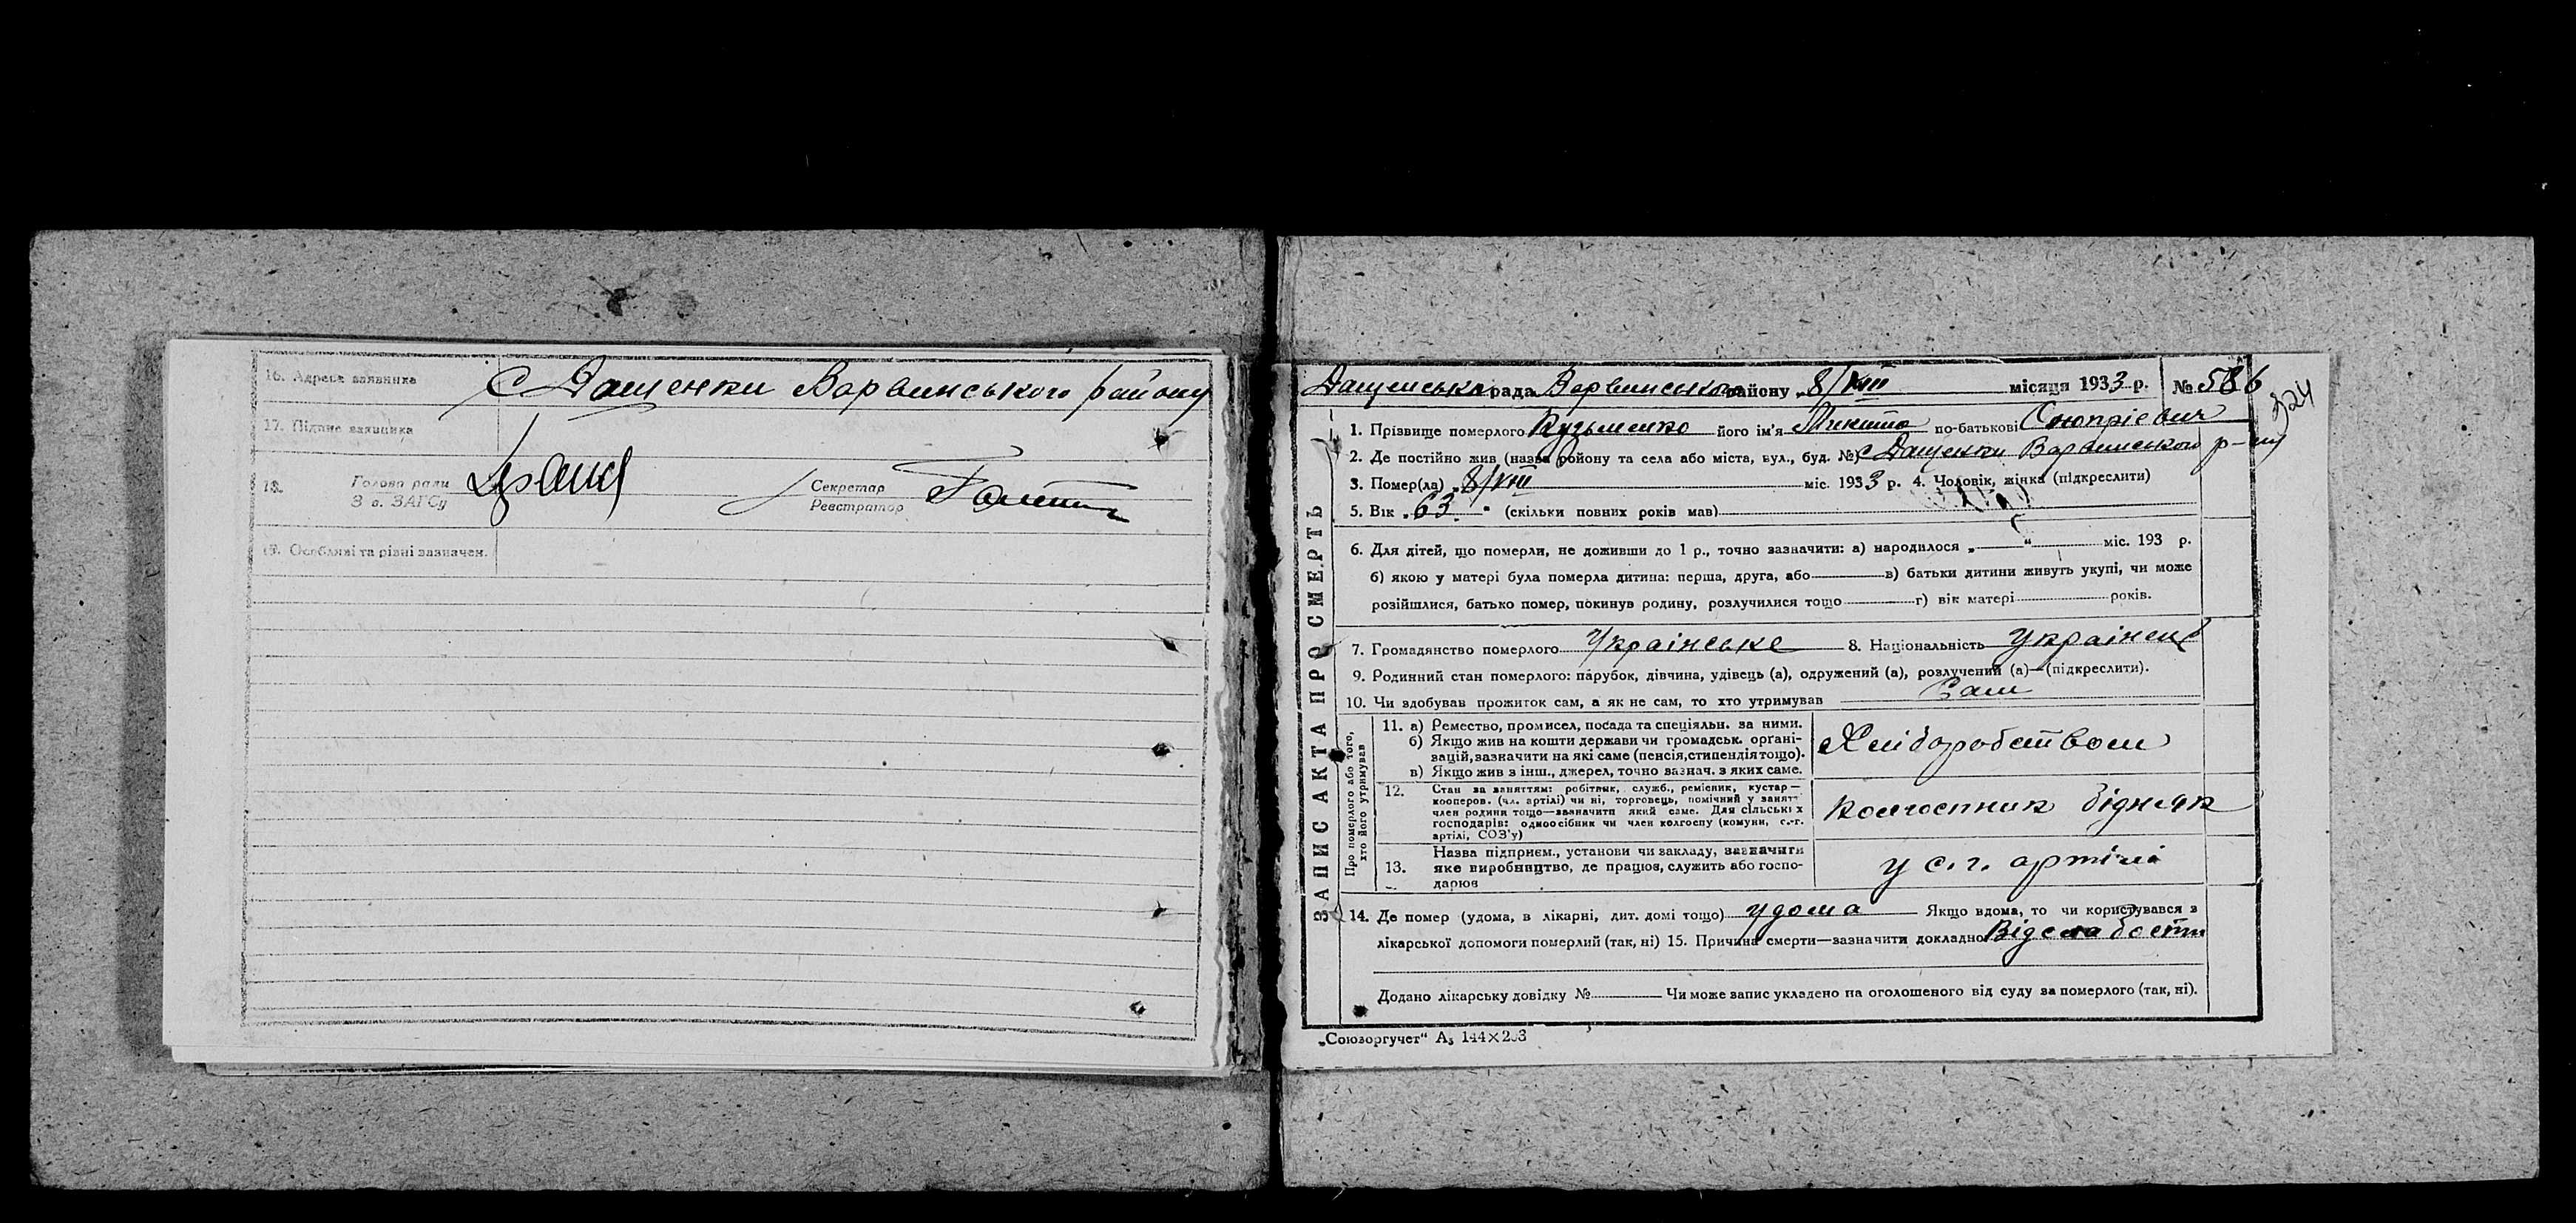 16. Адреса заявника с Дащенки Варвинського району
17. Підпис заявника
18. Голова ради Секретар
З в. ЗАГСу Реєстратор
19. Особливі та різні зазначен.
Дащенська рада Варвинського району „8/VIII місяця 1933 р. № 586
324
1. Прізвище померлого Кузьменко його ім'я Микита по-батькові
2. Де постійно жив (назва району та села або міста, вул., буд. №) с Дащенки Варвинського р-ну
3. Помер(ла) „8/VIII міс. 1933 р. 4. Чоловік, жінка (підкреслити)
5. Вік „63 “ (скільки повних років мав)
6. Для дітей, що померли, не доживши до 1 р., точно зазначити: а) народилося „ “ міс. 193 р.
б) якою у матері була померла дитина: перша, друга, або в) батьки дитини живуть укупі, чи може
розійшлися, батько помер, покинув родину, розлучилися тощо г) вік матері років.
7. Громадянство померлого Українське 8. Національність Українець
9. Родинний стан померлого: парубок, дівчина, удівець (а), одружений (а), розлучений (а)—(підкреслити).
10. Чи здобував прожиток сам, а як не сам, то хто утримував Сам
ЗАПИС АКТА ПРО СМЕРТЬ
Про померлого або того,
хто його утримував
11. а) Ремество, промисел, посада та спеціяльн. за ними.
б) Якщо жив на кошти держави чи громадськ. органі-
зацій, зазначити на які саме (пенсія, стипендія тощо).
в) Якщо жив з інш., джерел, точно зазнач. з яких саме.
Хліборобством
12. Стан за заняттям: робітник, служб., ремісник, кустар—
кооперов. (чл. артілі) чи ні, торговець, помічний у занят.
член родини тощо—зазначити який саме. Для сільських
господарів: одноосібник чи член колгоспу (комуни, с.-г.
артілі, СОЗ'у)
Колгоспник бідняк
Назва підприєм., установи чи закладу, зазначити
13. яке виробництво, де працює, служить або госпо-
дарює
у с. г. артілі
14. Де помер (удома, в лікарні, дит. домі тощо) удома Якщо вдома, то чи користувався з
лікарської допомоги померлий (так, ні) 15. Причина смерти—зазначити докладно Від слабости
Додано лікарську довідку № Чи може запис укладено на оголошеного від суду за померлого (так, ні).
„Союзоргучет“ А₅ 144×203